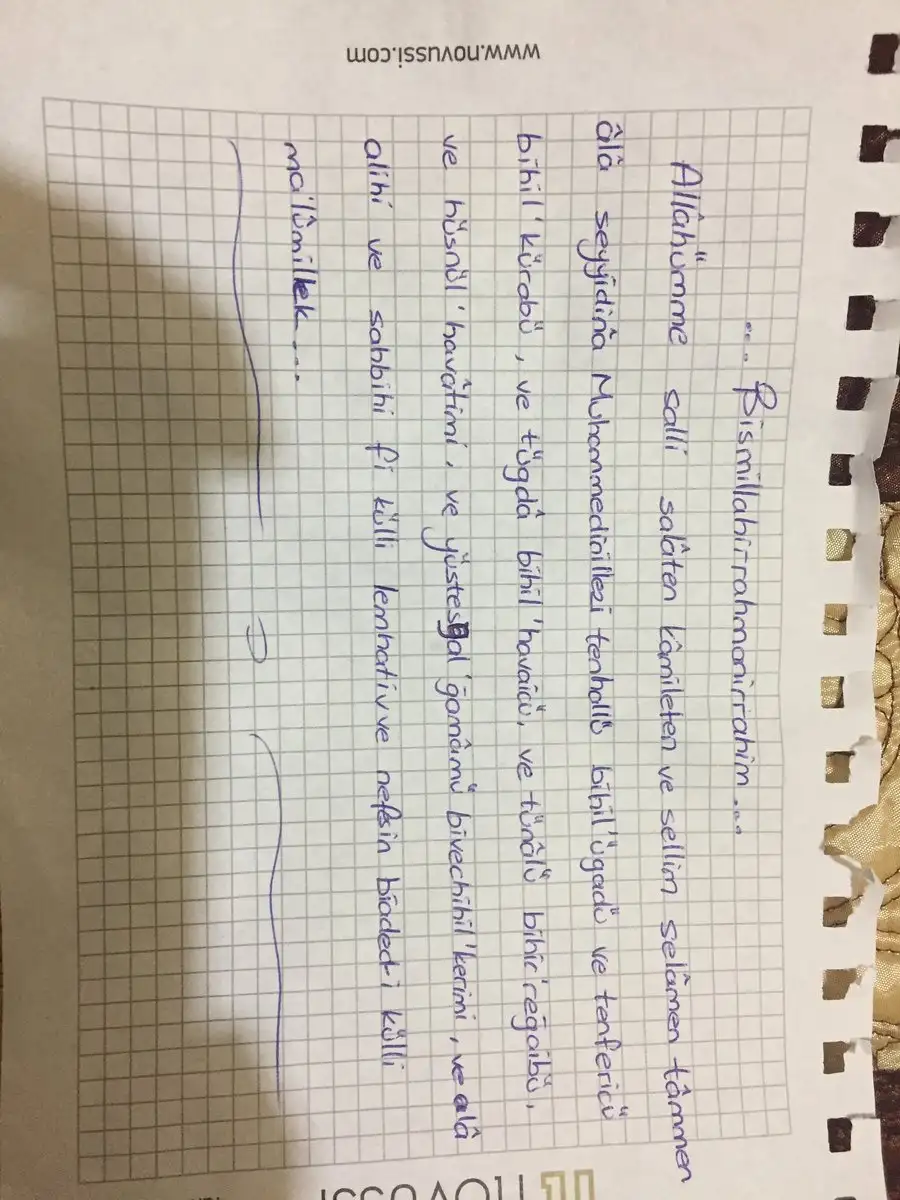 www.novussi.com
... Bismillahirrahmanirrahim...
Allâhümme salli salâten kâmileten ve sellim selâmen tâmmen
âlâ seyyîdinâ Muhammedinillezi tenhallü bihil'ügadü ve tenfericü
bihil'kürabü, ve tügdâ bihil'havaicü, ve tünâlü bihir'reğaibü,
ve hüsnül'havâtimi, ve yüstesgal'ğamâmü bivechihil'kerimi, ve alâ
alihi ve sahbihi fi külli lemhativve nefsin biaded-i külli
ma'lûmillek...
novussi